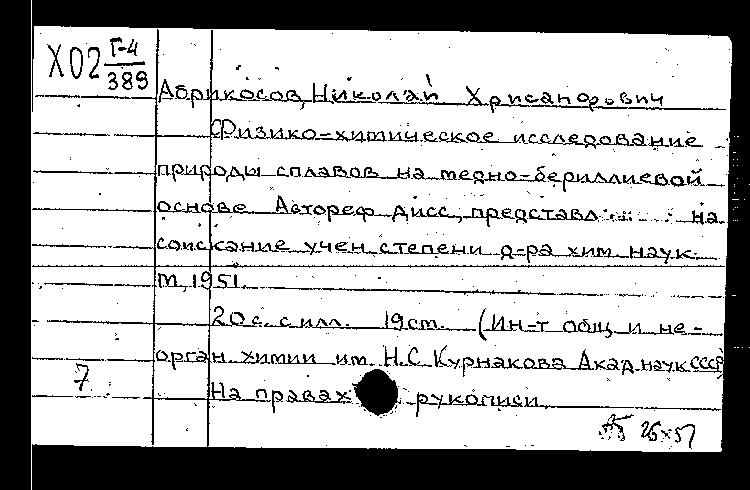 Х02 Г-4
389
Абрикосов, Николай Хрисанфович
Физико-химическое исследование
природы сплавов на медно-бериллиевой
основе Автореф дисс, представл на
соискание учен степени д-ра хим. наук.
М, 1951.
20 с. с илл. 19 см. (Ин-т общ и не-
орган. химии им. Н.С Курнакова Акад. наук СССР)
7
На правах рукописи